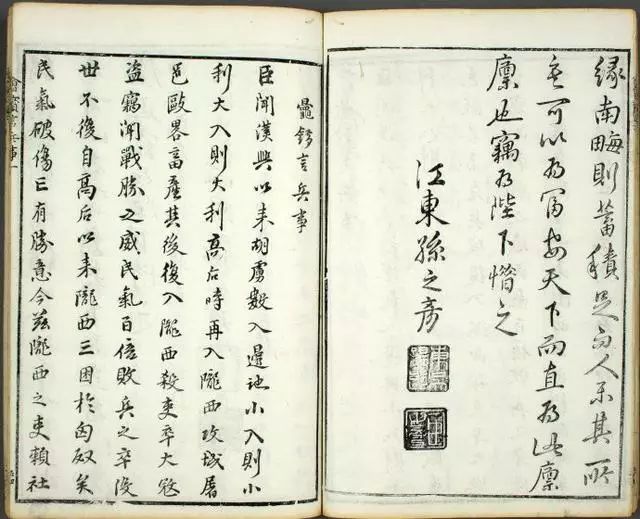 緣南畮則蓄積足而人樂其所
矣可以為富安天下而直為此廩
廩也竊為陛下惜之
江東孫之彥
鼂錯言兵事
臣聞漢興以來胡虜數入邊地小入則小
利大入則大利高后時再入隴西攻城屠
邑歐畧畜產其後復入隴西殺吏卒大寇
盜竊聞戰勝之威民氣百倍敗兵之卒沒
世不復自高后以來隴西三困於匈奴矣
民氣破傷亡有勝意今茲隴西之吏賴社